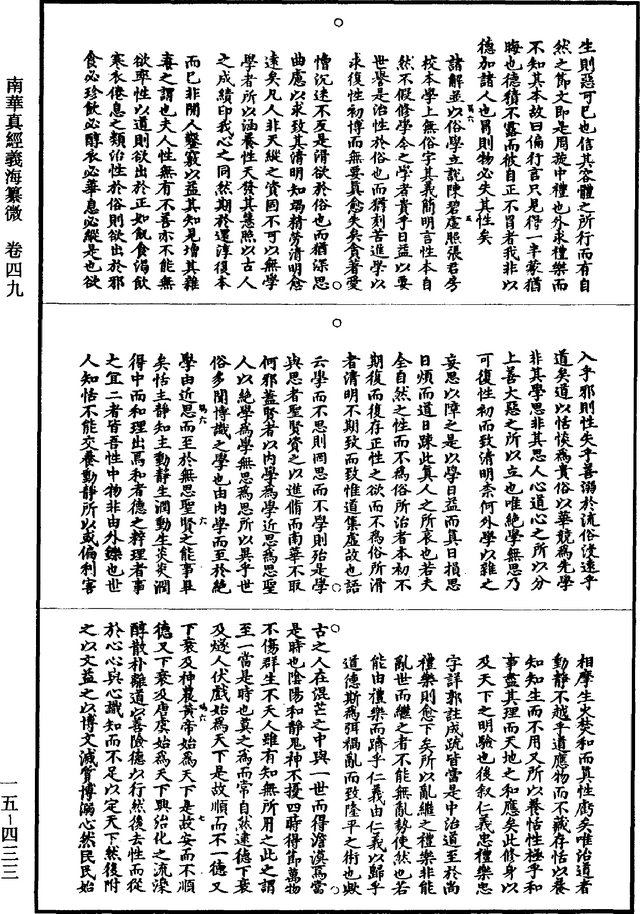 南華真經義海纂微 卷四九
一五-四三三
生則惡可已也信其容體之所行而有自
然之節文即是周旋中禮也外求禮樂而
不知其本故曰偏行言只見得一半蒙猶
晦也德積不露而彼自正不冒者我非以
德加諸人也冒則物必失其性矣
諸解並以俗學立說陳碧虛照張君房
校本學上無俗字其義簡明言性本自
然不假修學今之學者貴乎日益以要
世譽是治性於俗也而猶刻苦進學以
求復性初博而無要真愈失矣貪著愛
憎沉迷不反是滑欲於俗也而猶深思
曲慮以求致其清明知竭精勞清明愈
遠矣凡人非天縱之資固不可以無學
學者所以涵養性天發其慧照以古人
之成績印我心之同然期於還淳復本
而已非開人鑿竅以益其知見增其雜
毒之謂也夫人性無有不善亦不能無
欲率性以道則欲出於正如飢食渴飲
寒衣倦息之類治性於俗則欲出於邪
食必珍飲必醇衣必華息必縱是也欲
入乎邪則性失乎善溺於流俗浸遠乎
道矣道以恬惔為貴俗以華競為先學
非其學思非其思人心道心之所以分
上善大惡之所以立也唯絕學無思乃
可復性初而致清明柰何外學以雜之
妄思以障之是以學日益而真日損思
日煩而道日踈此真人之所哀也若夫
全自然之性而不為俗所治者本初不
期復而後存正性之欲而不為俗所滑
者清明不期致而致惟道集虛故也語
云學而不思則罔思而不學則殆是學
與思者聖賢資之以進脩而南華不取
何邪蓋賢者以內學為學近思為思聖
人以絕學為學無思為思所以異乎世
俗多聞博識之學也由內學而至於絕
學由近思而至於無思聖賢之能事畢
矣恬主靜知主動靜生潤動生炎炎潤
得中而和理出焉和者德之粹理者事
之宜二者皆吾性中物非由外鑠也世
人知恬不能交養動靜所以或偏利害
相摩生火焚和而真性虧矣唯治道者
動靜不越乎道應物而不藏存恬以養
知知生而不用又所以養恬性極乎和
事盡其理而天地之和應矣此修身以
及天下之明驗也後敘仁義忠禮樂忠
字詳郭註成疏皆當是中治道至於尚
禮樂則愈下矣所以亂繼之禮樂非能
亂世而繼之者不能無亂勢使然也若
能由禮樂而躋乎仁義由仁義以歸乎
道德斯為弭禍亂而致隆平之術也歟
古之人在混芒之中與一世而得澹漠焉當
是時也陰陽和靜鬼神不擾四時得節萬物
不傷群生不夭人雖有知無所用之此之謂
至一當是時也莫之為而常自然逮德下衰
及燧人伏戲始為天下是故順而不一德又
下衰及神農黃帝始為天下是故安而不順
德又下衰及唐虞始為天下興治化之流澆
醇散朴離道以善險德以行然後去性而從
於心心與心識知而不足以定天下然後附
之以文益之以博文滅質博溺心然民民始